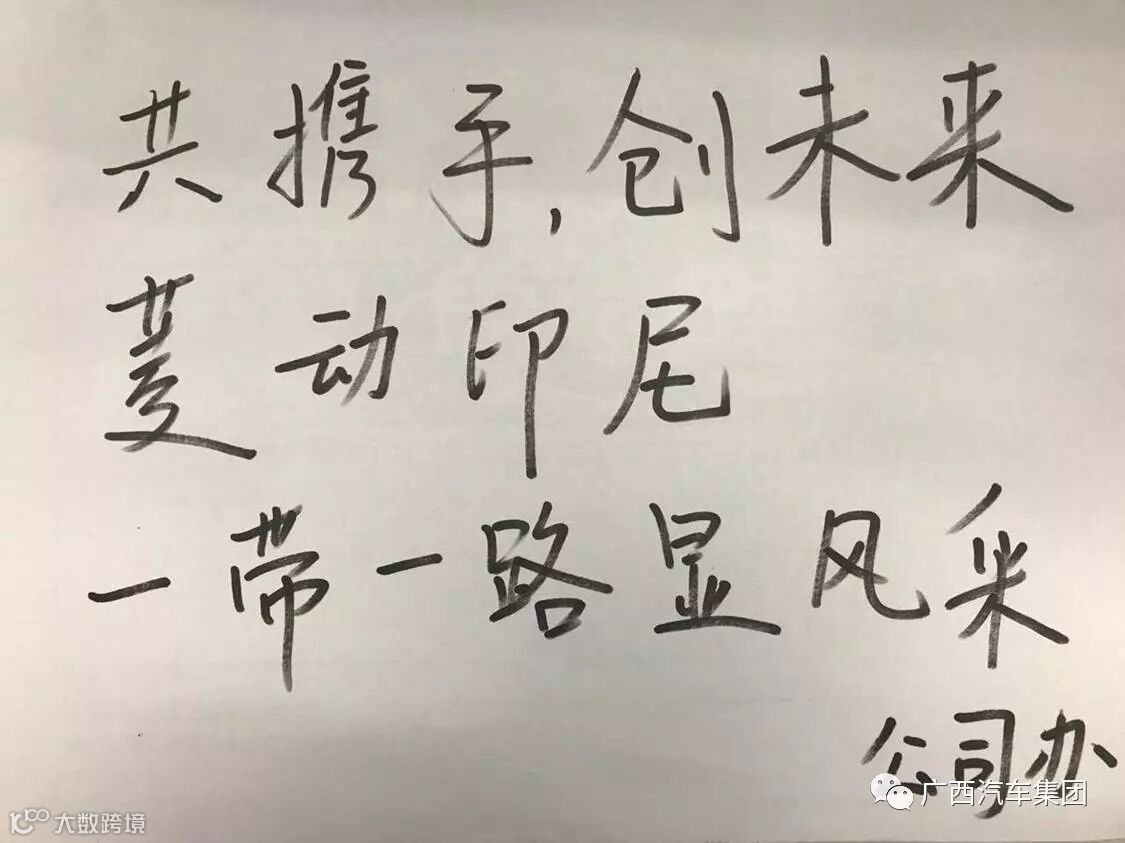 共携手,创未来
菱动印尼
一带一路显风采
公司办
广西汽车集团
大数跨境